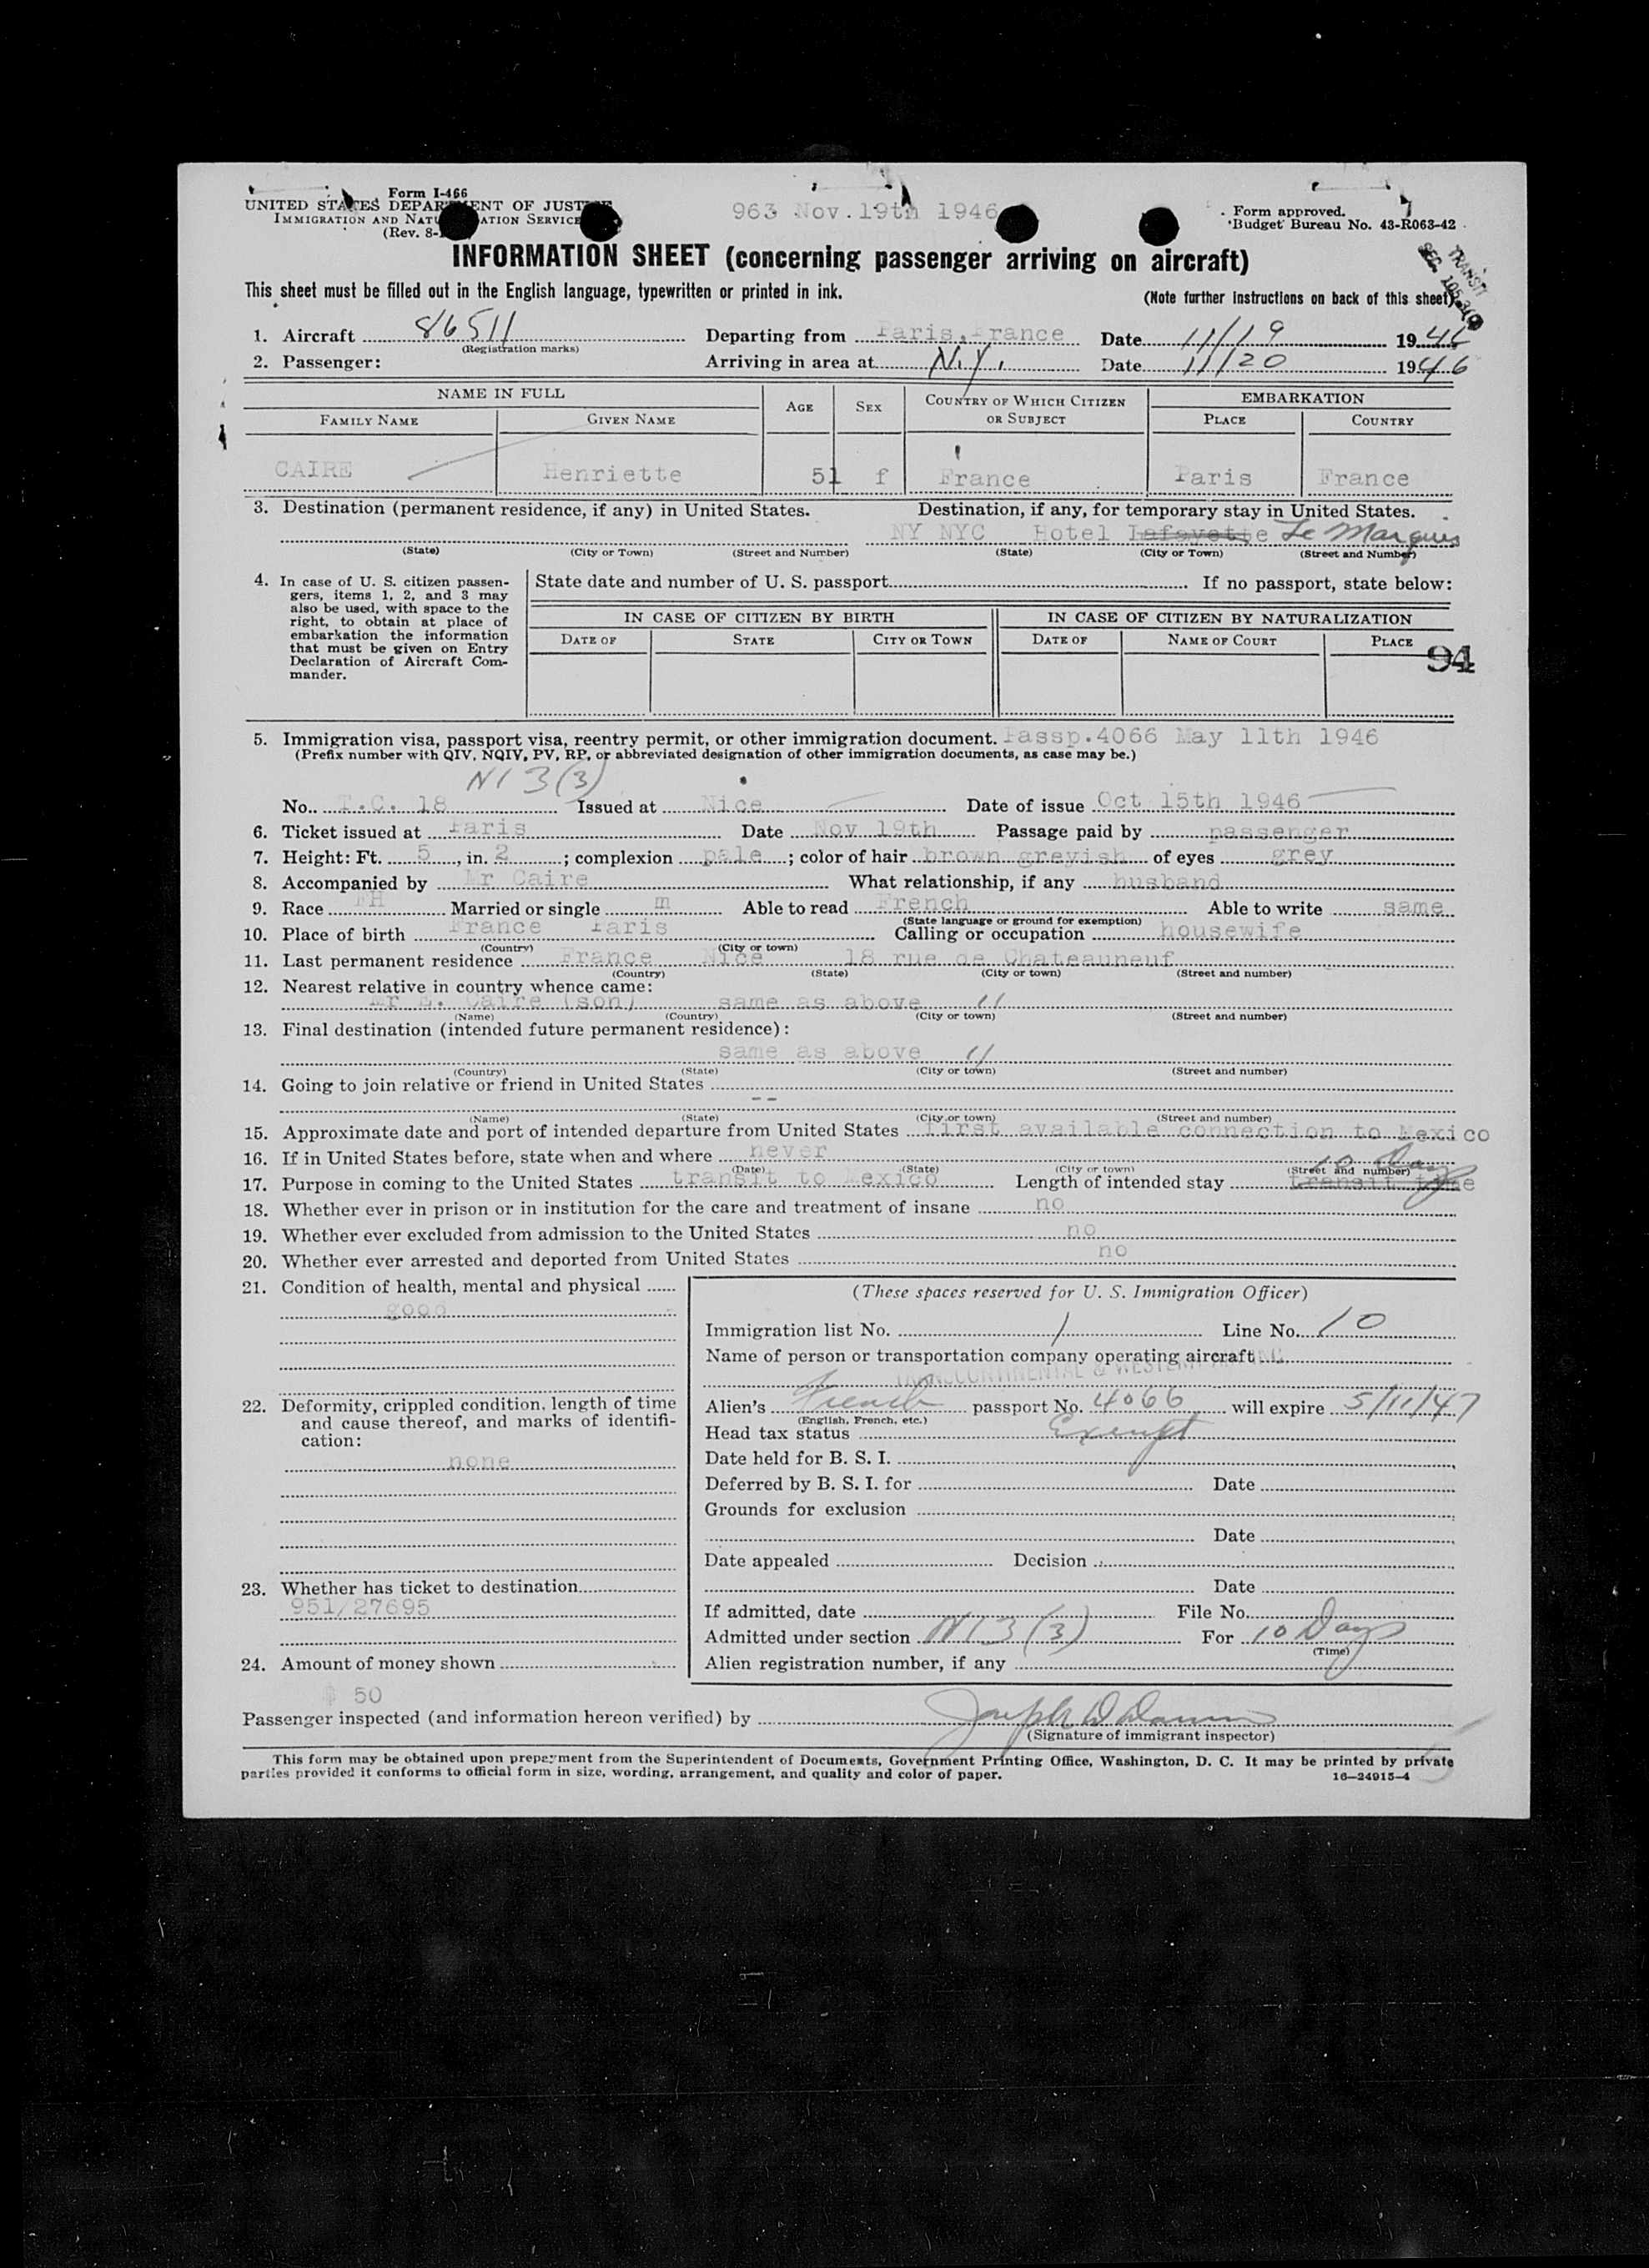 Form I-466
UNITED STATES DEPARTMENT OF JUSTICE
IMMIGRATION AND NATURALIZATION SERVICE
(Rev. 8-
963 Nov. 19th 1946
Form approved.
Budget Bureau No. 43-R063-42
TRANSIT
SEC. 105.3(
INFORMATION SHEET (concerning passenger arriving on aircraft)
This sheet must be filled out in the English language, typewritten or printed in ink.
(Note further instructions on back of this sheet)
1. Aircraft 86511 Departing from Paris, France Date 11/19 1946
(Registration marks)
2. Passenger: Arriving in area at N.Y. Date 11/20 1946
NAME IN FULL AGE SEX COUNTRY OF WHICH CITIZEN OR SUBJECT EMBARKATION
FAMILY NAME GIVEN NAME PLACE COUNTRY
CAIRE Henriette 51 f France Paris France
3. Destination (permanent residence, if any) in United States. Destination, if any, for temporary stay in United States.
NY NYC Hotel Lafayette Le Marquis
(State) (City or Town) (Street and Number) (State) (City or Town) (Street and Number)
4. In case of U. S. citizen passengers, items 1, 2, and 3 may also be used, with space to the right, to obtain at place of embarkation the information that must be given on Entry Declaration of Aircraft Commander.
State date and number of U. S. passport If no passport, state below:
IN CASE OF CITIZEN BY BIRTH IN CASE OF CITIZEN BY NATURALIZATION
DATE OF STATE CITY OR TOWN DATE OF NAME OF COURT PLACE
94
5. Immigration visa, passport visa, reentry permit, or other immigration document. Passp.4066 May 11th 1946
(Prefix number with QIV, NQIV, PV, RP, or abbreviated designation of other immigration documents, as case may be.)
N13(3)
No. T.C. 18 Issued at Nice Date of issue Oct 15th 1946
6. Ticket issued at Paris Date Nov 19th Passage paid by passenger
7. Height: Ft. 5, in. 2; complexion pale; color of hair brown greyish of eyes grey
8. Accompanied by Mr Caire What relationship, if any husband
9. Race FH Married or single m Able to read French Able to write same
(State language or ground for exemption)
10. Place of birth France Paris Calling or occupation housewife
(Country) (City or town)
11. Last permanent residence France Nice 18 rue de Chateauneuf
(Country) (State) (City or town) (Street and number)
12. Nearest relative in country whence came:
Mr E. Caire (son) same as above 11
(Name) (Country) (City or town) (Street and number)
13. Final destination (intended future permanent residence):
same as above 11
(Country) (State) (City or town) (Street and number)
14. Going to join relative or friend in United States
--
(Name) (State) (City or town) (Street and number)
15. Approximate date and port of intended departure from United States first available connection to Mexico
16. If in United States before, state when and where never
(Date) (State) (City or town) (Street and number)
10 Days
17. Purpose in coming to the United States transit to Mexico Length of intended stay transit time
18. Whether ever in prison or in institution for the care and treatment of insane no
19. Whether ever excluded from admission to the United States no
20. Whether ever arrested and deported from United States no
21. Condition of health, mental and physical
good
(These spaces reserved for U. S. Immigration Officer)
Immigration list No. 1 Line No. 10
Name of person or transportation company operating aircraft
TRANSCONTINENTAL & WESTERN AIR INC
22. Deformity, crippled condition, length of time and cause thereof, and marks of identification:
none
Alien's French passport No. 4066 will expire 5/11/47
(English, French, etc.)
Head tax status Exempt
Date held for B. S. I.
Deferred by B. S. I. for Date
Grounds for exclusion
Date
Date appealed Decision
23. Whether has ticket to destination
951/27695
Date
If admitted, date File No.
Admitted under section N13(3) For 10 Days
(Time)
24. Amount of money shown
$ 50
Alien registration number, if any
Passenger inspected (and information hereon verified) by Joseph D
(Signature of immigrant inspector)
This form may be obtained upon prepayment from the Superintendent of Documents, Government Printing Office, Washington, D. C. It may be printed by private
parties provided it conforms to official form in size, wording, arrangement, and quality and color of paper. 16—24915-4